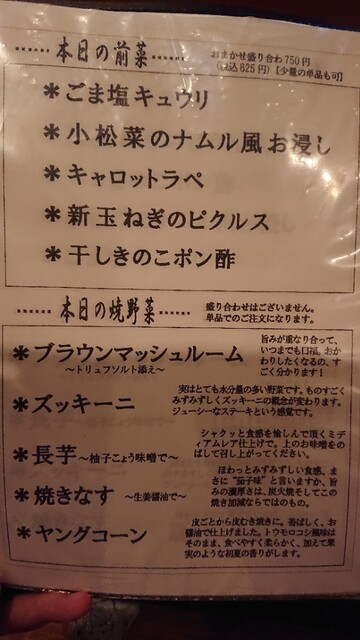 本日の前菜
おまかせ盛り合わ750円
(税込825円)【少量の単品も可】
*ごま塩キュウリ
*小松菜のナムル風お浸し
*キャロットラペ
*新玉ねぎのピクルス
*干しきのこポン酢
本日の焼野菜
盛り合わせはございません。
単品でのご注文になります。
*ブラウンマッシュルーム
~トリュフソルト添え~
旨みが重なり合って、
いつまでも口福。おか
わりしたくなるの、す
ごく分かります!
*ズッキーニ
実はとても水分量の多い野菜です。ものすごく
みずみずしくズッキーニの概念が変わります。
ジューシーなステーキという感覚です。
*長芋~柚子こょう味噌で~
シャクッと食感を愉しんで頂くミデ
ィアムレア仕上げで。上のお味噌をの
ばして召し上がってください。
*焼きなす ~生姜醤油で~
ほわっとみずみずしい食感、ま
さに"茄子味"と言いますか、旨
みの濃厚さは、炭火焼そしてこの
焼き加減ならではのもの。
*ヤングコーン
皮ごとから皮むき焼きに。香ばしく、お
醤油で仕上げました。トウモロコシ風味は
そのまま、食べやすく柔らかく、加えて果
実のような初夏の香りがします。